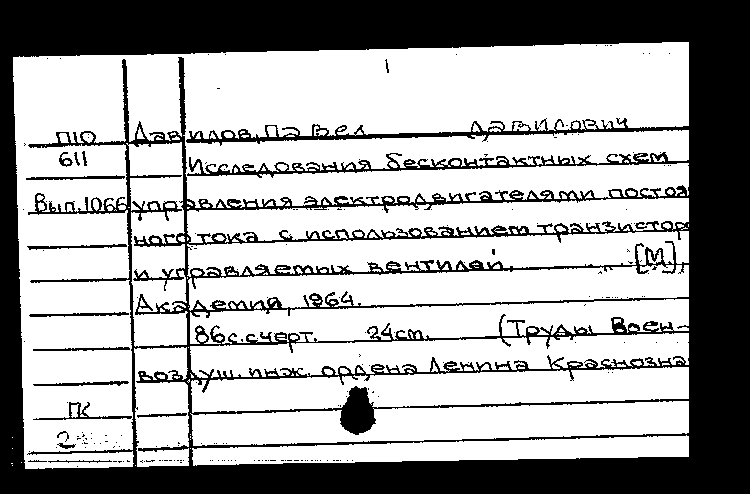 1
П10 Давидов, Павел Давидович
611 Исследования бесконтактных схем
Вып.1066 управления электродвигателями постоя
ного тока с использованием транзистор
и управляемых вентилей. [М],
Академия, 1964.
86с.счерт. 24cm. (Труды Воен-
воздуш. инж. ордена Ленина Краснозна
ПК
2